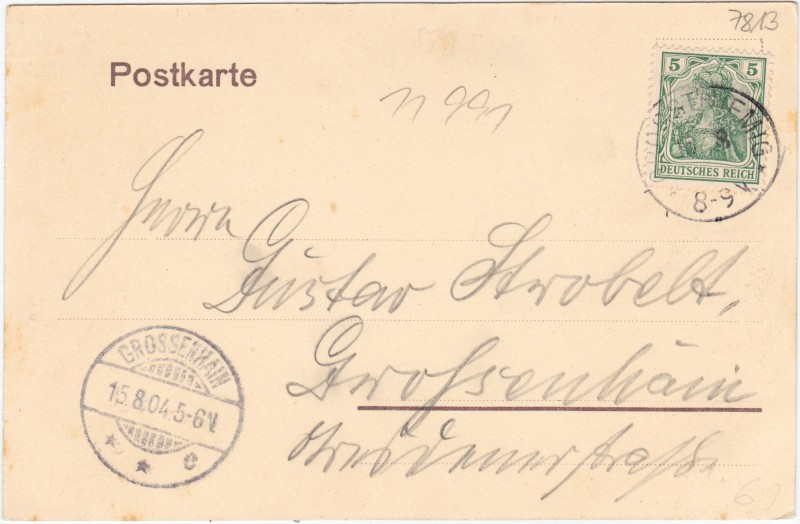 7813
Postkarte
5 5
DEUTSCHES REICH
8-9 V
Herrn
Gustav Strobelt,
Grossenhain
Dresdenerstraße
GROSSENHAIN
15.8.04.5-6V.
* * c